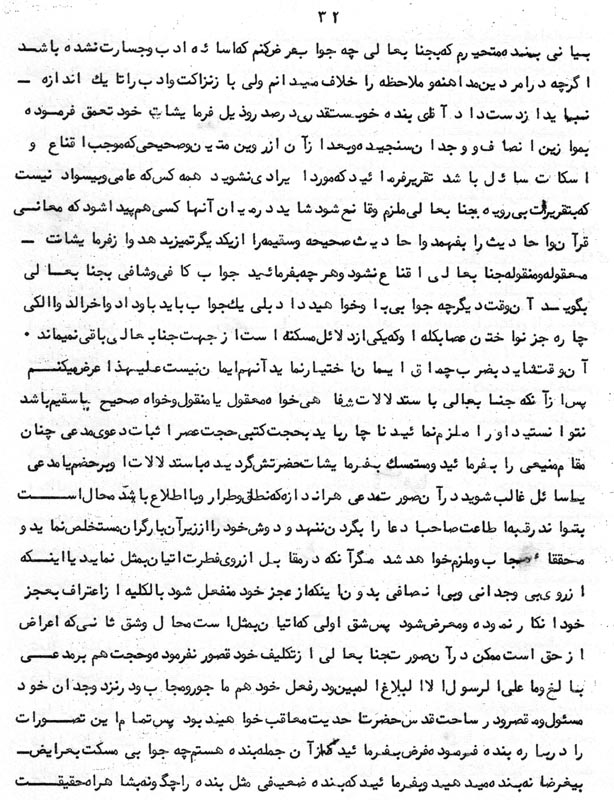 ٣٢
بیانی بنده متحیرم که بجنابعالی چه جواب عرض کنم که اسائه ادب و جسارت نشده باشد
اگرچه در امر دین مداهنه و ملاحظه را خلاف میدانم ولی با نزاکت و ادب را تا یك اندازه –
نباید از دست داد آقای بنده خوبست قدری در صدر و ذیل فرمایشات خود تعمق فرموده
بموازین انصاف و وجدان سنجیده و بعد از آن از روی متین و صحیحی که موجب اقناع و
اسکات سائل باشد تقریر فرمائید که مورد ایرادی نشوید همه کس که عامی و بیسواد نیست
که بتقریرات بی رویه جنابعالی ملزم و قانع شود شاید در میان آنها کسی هم پیدا شود که معانی
قرآن و احادیث را بفهمد و احادیث صحیحه و سقیمه را از یکدیگر تمیز بدهد و از فرمایشات –
معقوله و منقوله جنابعالی اقناع نشود و هرچه بفرمائید جواب کافی و شافی بجنابعالی
بگوید آنوقت دیگر چه جوابی با و خواهید داد بلی یك جواب باید باو داد و آخر الدواء الکی
چاره جز نواختن عصا بکله او که یکی از دلائل مسکته است از جهت جنابعالی باقی نمیماند ٠
آنوقت شاید بضرب چماق ایمان اختیار نماید آنهم ایمان نیست علیهذا عرض میکنم
پس از آنکه جنابعالی با ستدلالات شفاهی خواه معقول یا منقول و خواه صحیح یا سقیم باشد
نتوانستید او را ملزم نمائید ناچار باید بحجت کتبی حجت عصر اثبات دعوی مدعی چنان
مقام منیعی را بفرمائید و متمسك بفرمایشات حضرتش گردیده با ستدلالات او بر خصم یا مدعی
یا سائل غالب شوید در آنصورت مدعی هر اندازه که نطاق و طرار و با اطلاع باشد محال است
بتواند رقبه اطاعت صاحب ادعا را بگردن ننهد و دوش خود را از زیر آن بار گران مستخلص نماید و
محققا مجاب و ملزم خواهد شد مگر آنکه در مقابل از روی فطرت اتیان بمثل نماید یا اینکه
از روی بی وجدانی و بی انصافی بدون اینکه از عجز خود منفعل شود بالکلیه از اعتراف بعجز
خود انکار نموده و معرض شود پس شق اولی که اتیان بمثل است محال و شق ثانی که اعراض
از حق است ممکن در آنصورت جنابعالی از تکلیف خود قصور نفرموده و حجت هم بر مدعی
بالغ و ما علی الرسول الا البلاغ المبین و در فعل خود هم ماجور و مجاب و در نزد وجدان خود
مسئول و مقصر و در ساحت قدس حضرت احدیت معاقب خواهید بود پس تمام این تصورات
را درباره بنده فرموده فرض بفرمائید که از آنجمله بنده هستم چه جوابی مسکت بعرایض –
بیغرضانه بنده میدهید و بفرمائید که بنده ضعیفی مثل بنده را چگونه بشاهراه حقیقت